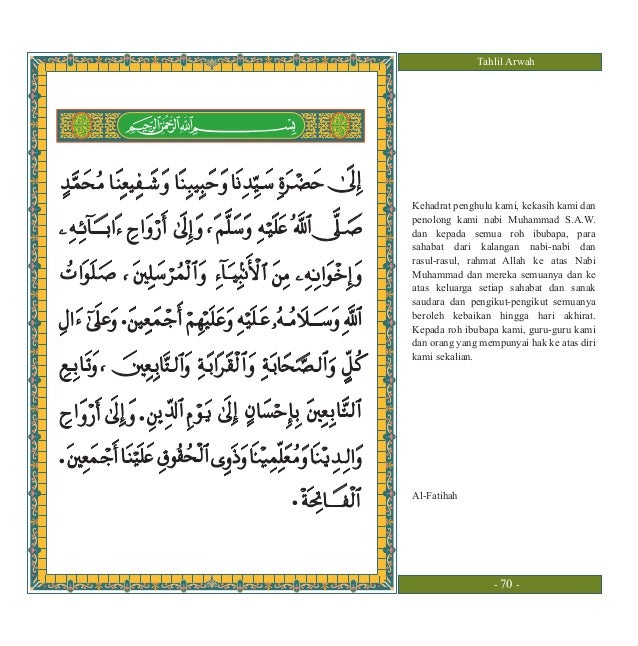 Tahlil Arwah
بِسْمِ اللَّهِ الرَّحْمَٰنِ الرَّحِيمِ
إِلَىٰ حَضْرَةِ سَيِّدِنَا وَحَبِيبِنَا وَشَفِيعِنَا مُحَمَّدٍ
صَلَّى ٱللَّهُ عَلَيْهِ وَسَلَّمَ، وَإِلَىٰ أَرْوَاحِ ءَابَآئِهِۦ
وَإِخْوَانِهِۦ مِنَ ٱلْأَنْبِيَآءِ وَٱلْمُرْسَلِينَ، صَلَوَاتُ
ٱللَّهِ وَسَلَامُهُۥ عَلَيْهِ وَعَلَيْهِمْ أَجْمَعِينَ. وَعَلَىٰ ءَالِ
كُلٍّ وَٱلصَّحَابَةِ وَٱلْقَرَابَةِ وَٱلتَّابِعِينَ، وَتَابِعِ
ٱلتَّابِعِينَ بِإِحْسَانٍ إِلَىٰ يَوْمِ ٱلدِّينِ. وَإِلَىٰ أَرْوَاحِ
وَالِدِيْنَا وَمُعَلِّمِيْنَا وَذَوِى ٱلْحُقُوقِ عَلَيْنَا أَجْمَعِينَ.
ٱلْفَاتِحَةَ.
Kehadrat penghulu kami, kekasih kami dan
penolong kami nabi Muhammad S.A.W.
dan kepada semua roh ibubapa, para
sahabat dari kalangan nabi-nabi dan
rasul-rasul, rahmat Allah ke atas Nabi
Muhammad dan mereka semuanya dan ke
atas keluarga setiap sahabat dan sanak
saudara dan pengikut-pengikut semuanya
beroleh kebaikan hingga hari akhirat.
Kepada roh ibubapa kami, guru-guru kami
dan orang yang mempunyai hak ke atas diri
kami sekalian.
Al-Fatihah
- 70 -